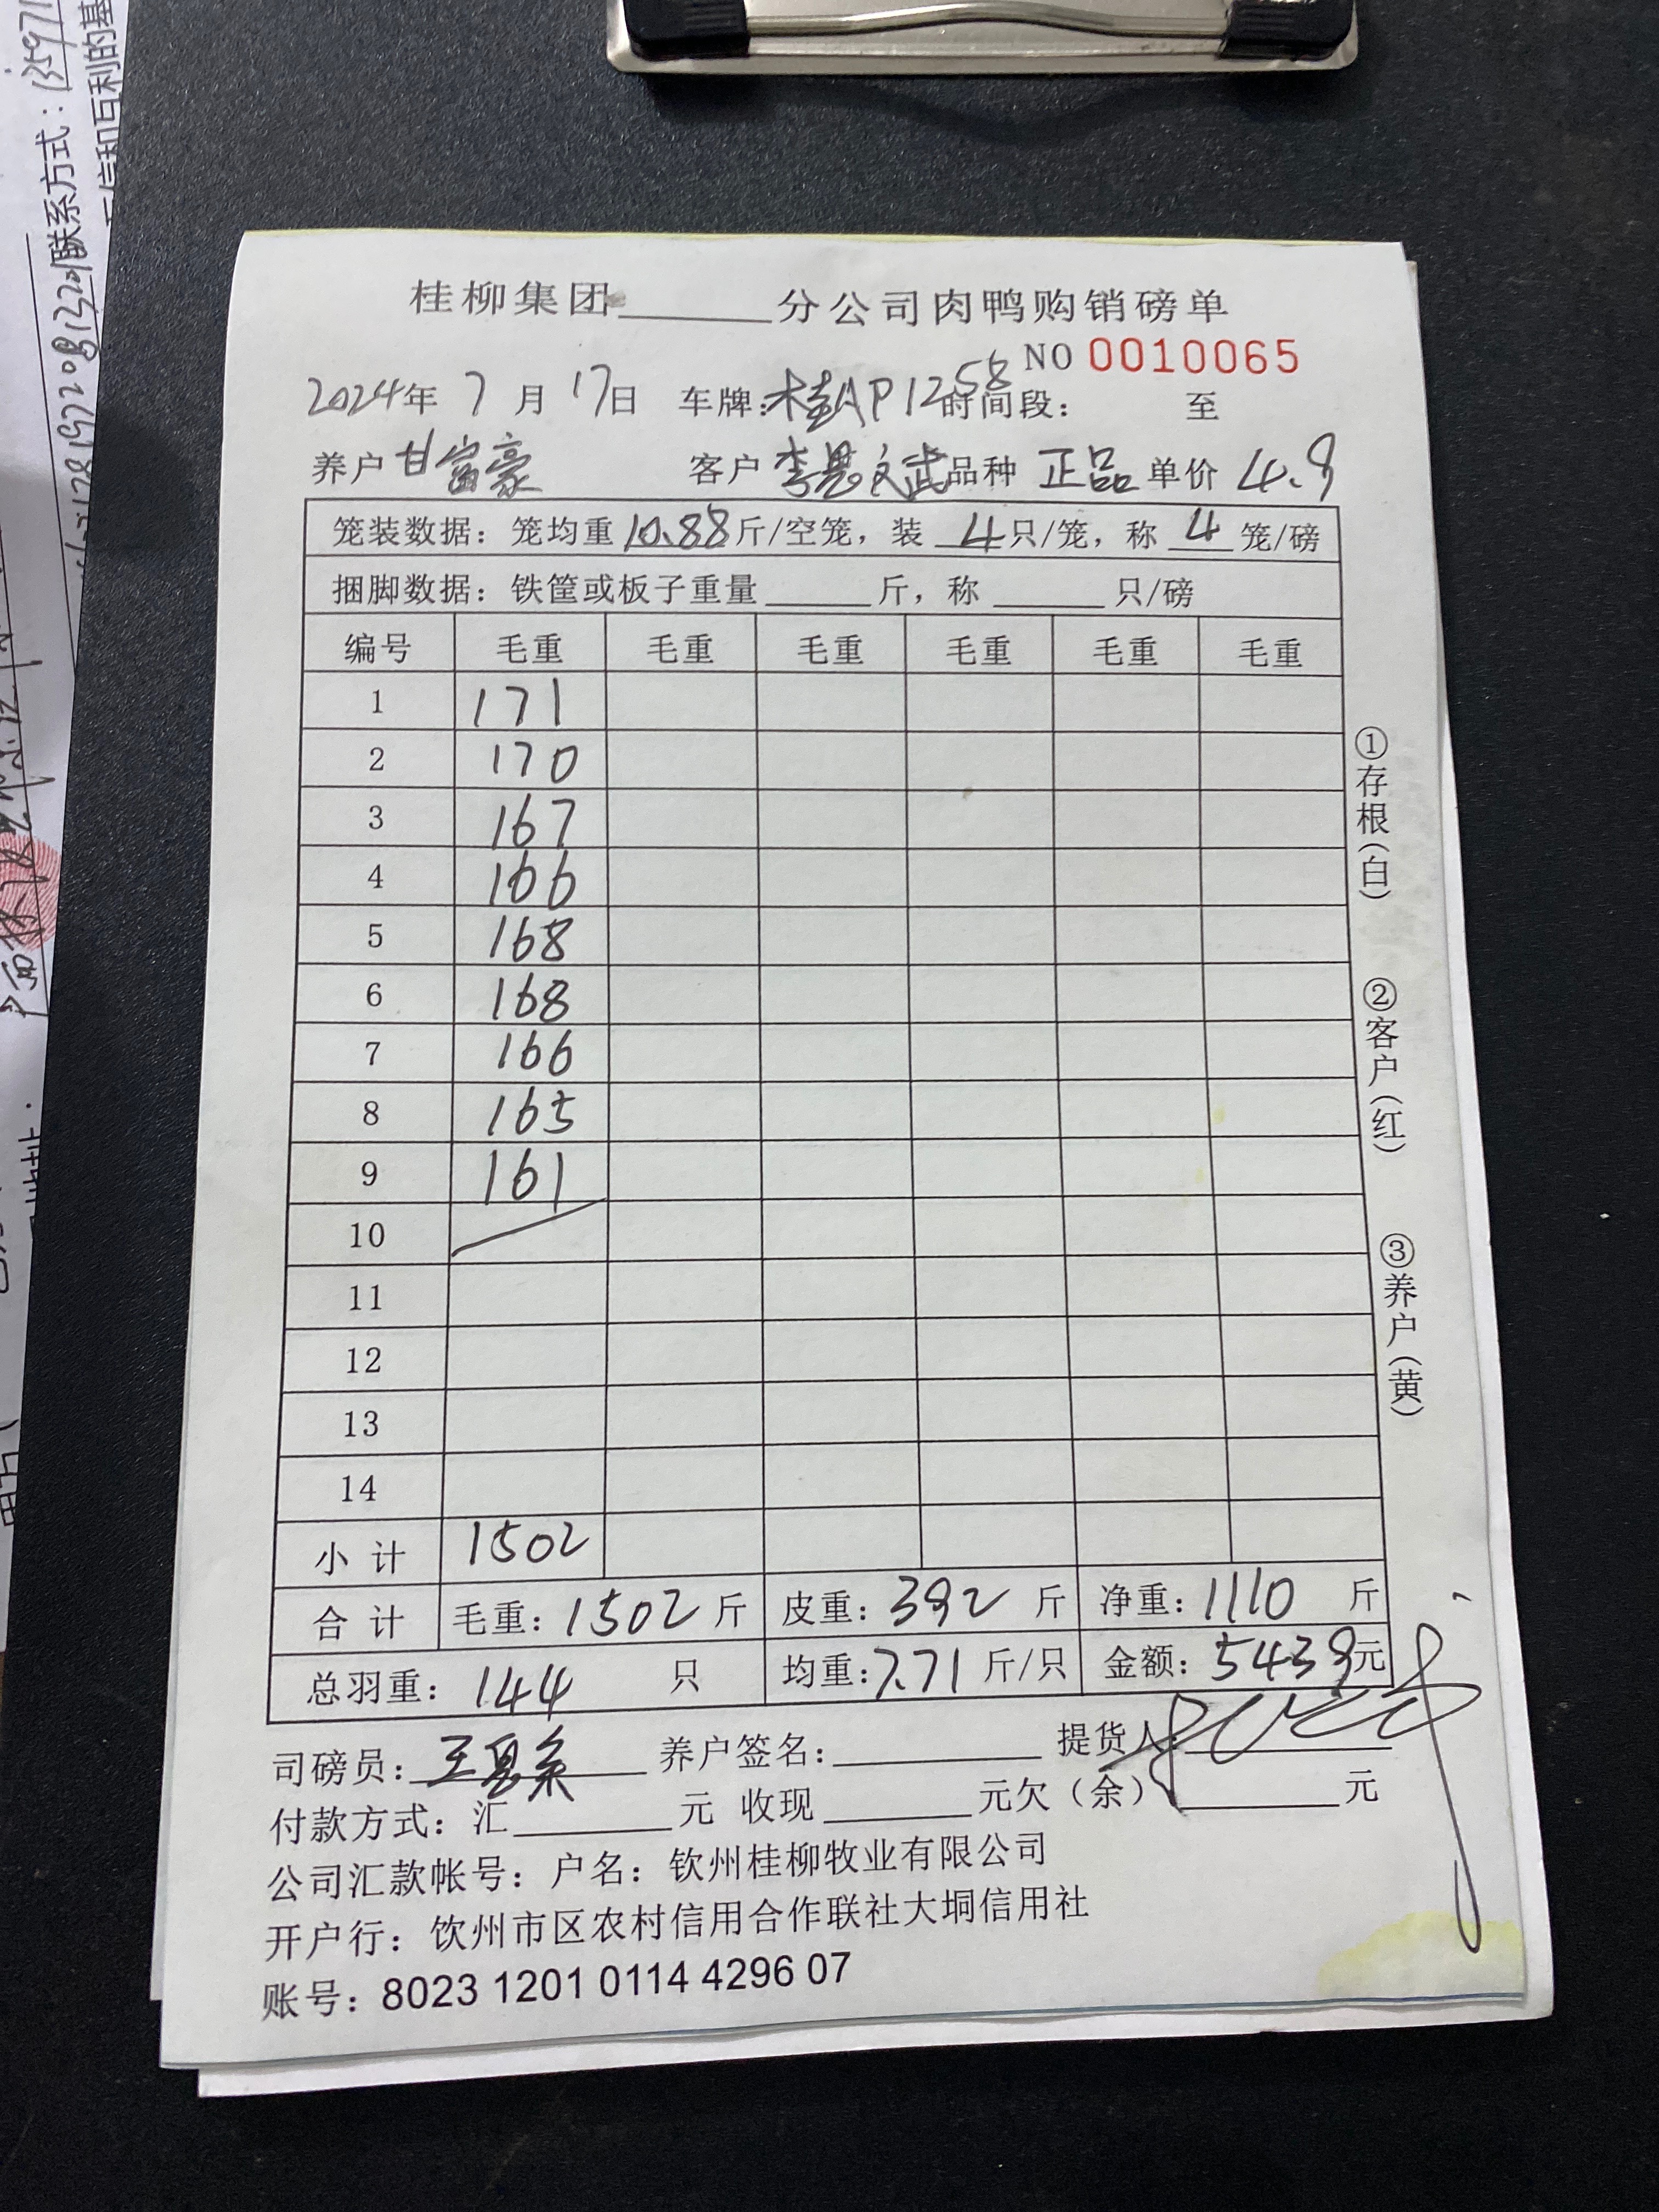 桂柳集团______分公司肉鸭购销磅单
NO 0010065
2024年 7月 17日 车牌:桂AP1258 时间段: 至
养户 甘富豪 客户 李思文武 品种 正品 单价 4.9
笼装数据：笼均重10.88斤/空笼，装 4只/笼，称 4 笼/磅
捆脚数据：铁筐或板子重量______斤，称______只/磅
编号 毛重 毛重 毛重 毛重 毛重 毛重
1 171
2 170
3 167
4 166
5 168
6 168
7 166
8 165
9 161
10
11
12
13
14
小计 1502
合计 毛重：1502 斤 皮重：392 斤 净重：1110 斤
总羽重：144 只 均重：7.71 斤/只 金额：5439元
①存根（白）
②客户（红）
③养户（黄）
司磅员： 养户签名：______ 提货人：
付款方式：汇______元 收现______元欠（余）______元
公司汇款帐号：户名：钦州桂柳牧业有限公司
开户行：钦州市区农村信用合作联社大垌信用社
账号：8023 1201 0114 4296 07
联系方式：